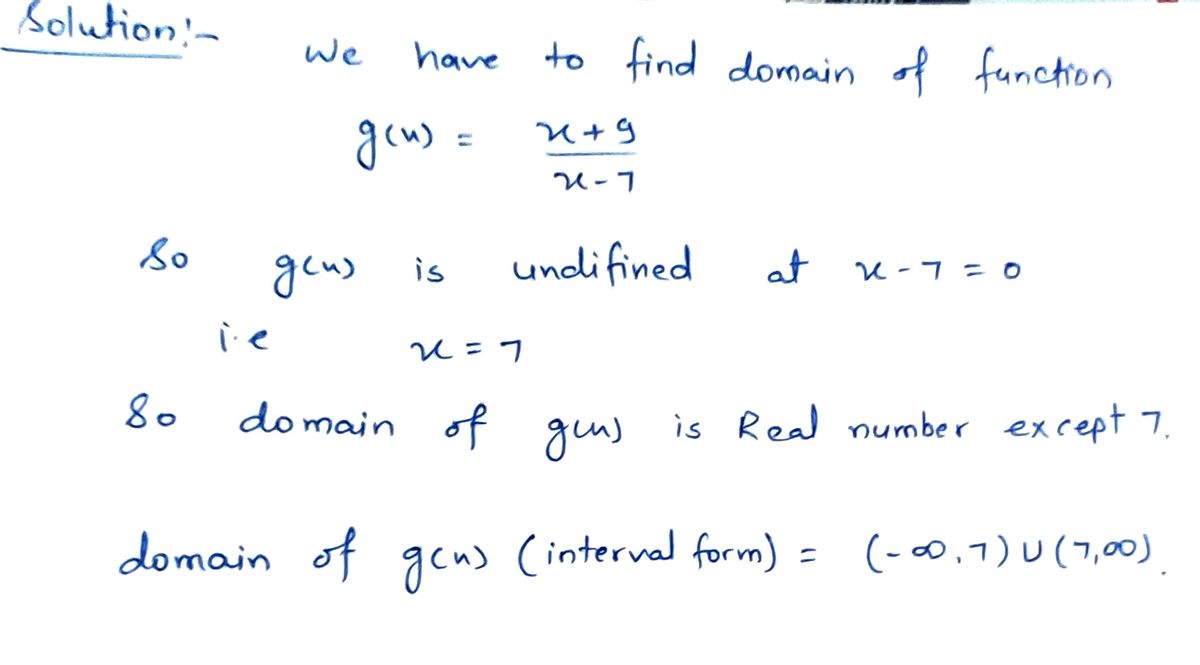 Solution:-
We have to find domain of function
g(x) = x+9
x-7
So g(x) is undifined at x-7=0
i.e x=7
So domain of g(x) is Real number except 7.
domain of g(x) (interval form) = (-∞,7)∪(7,∞).